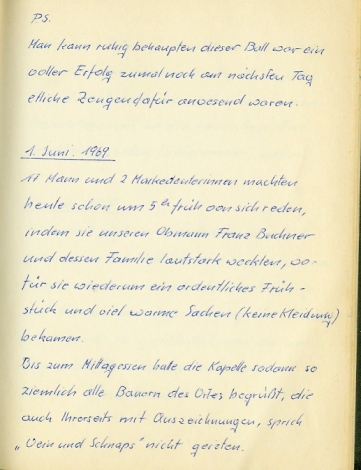 P.S.
Man kann ruhig behaupten dieser Ball war ein
voller Erfolg zumal noch am nächsten Tag
etliche Zeugen dafür anwesend waren.
1. Juni. 1969
17 Mann und 2 Marketenterinnen machten
heute schon um 5 früh von sich reden,
indem sie unseren Obmann Franz Buchner
und dessen Familie lautstark weckten, wo-
für sie wiederum ein ordentliches Früh-
stück und viel warme Sachen (keine Kleidung)
bekamen.
Bis zum Mittagessen hate die Kapelle sodann so
ziemlich alle Bauern des Ortes begrüßt, die
auch Ihrerseits mit Auszeichnungen, sprich
„Wein und Schnaps" nicht geizten.